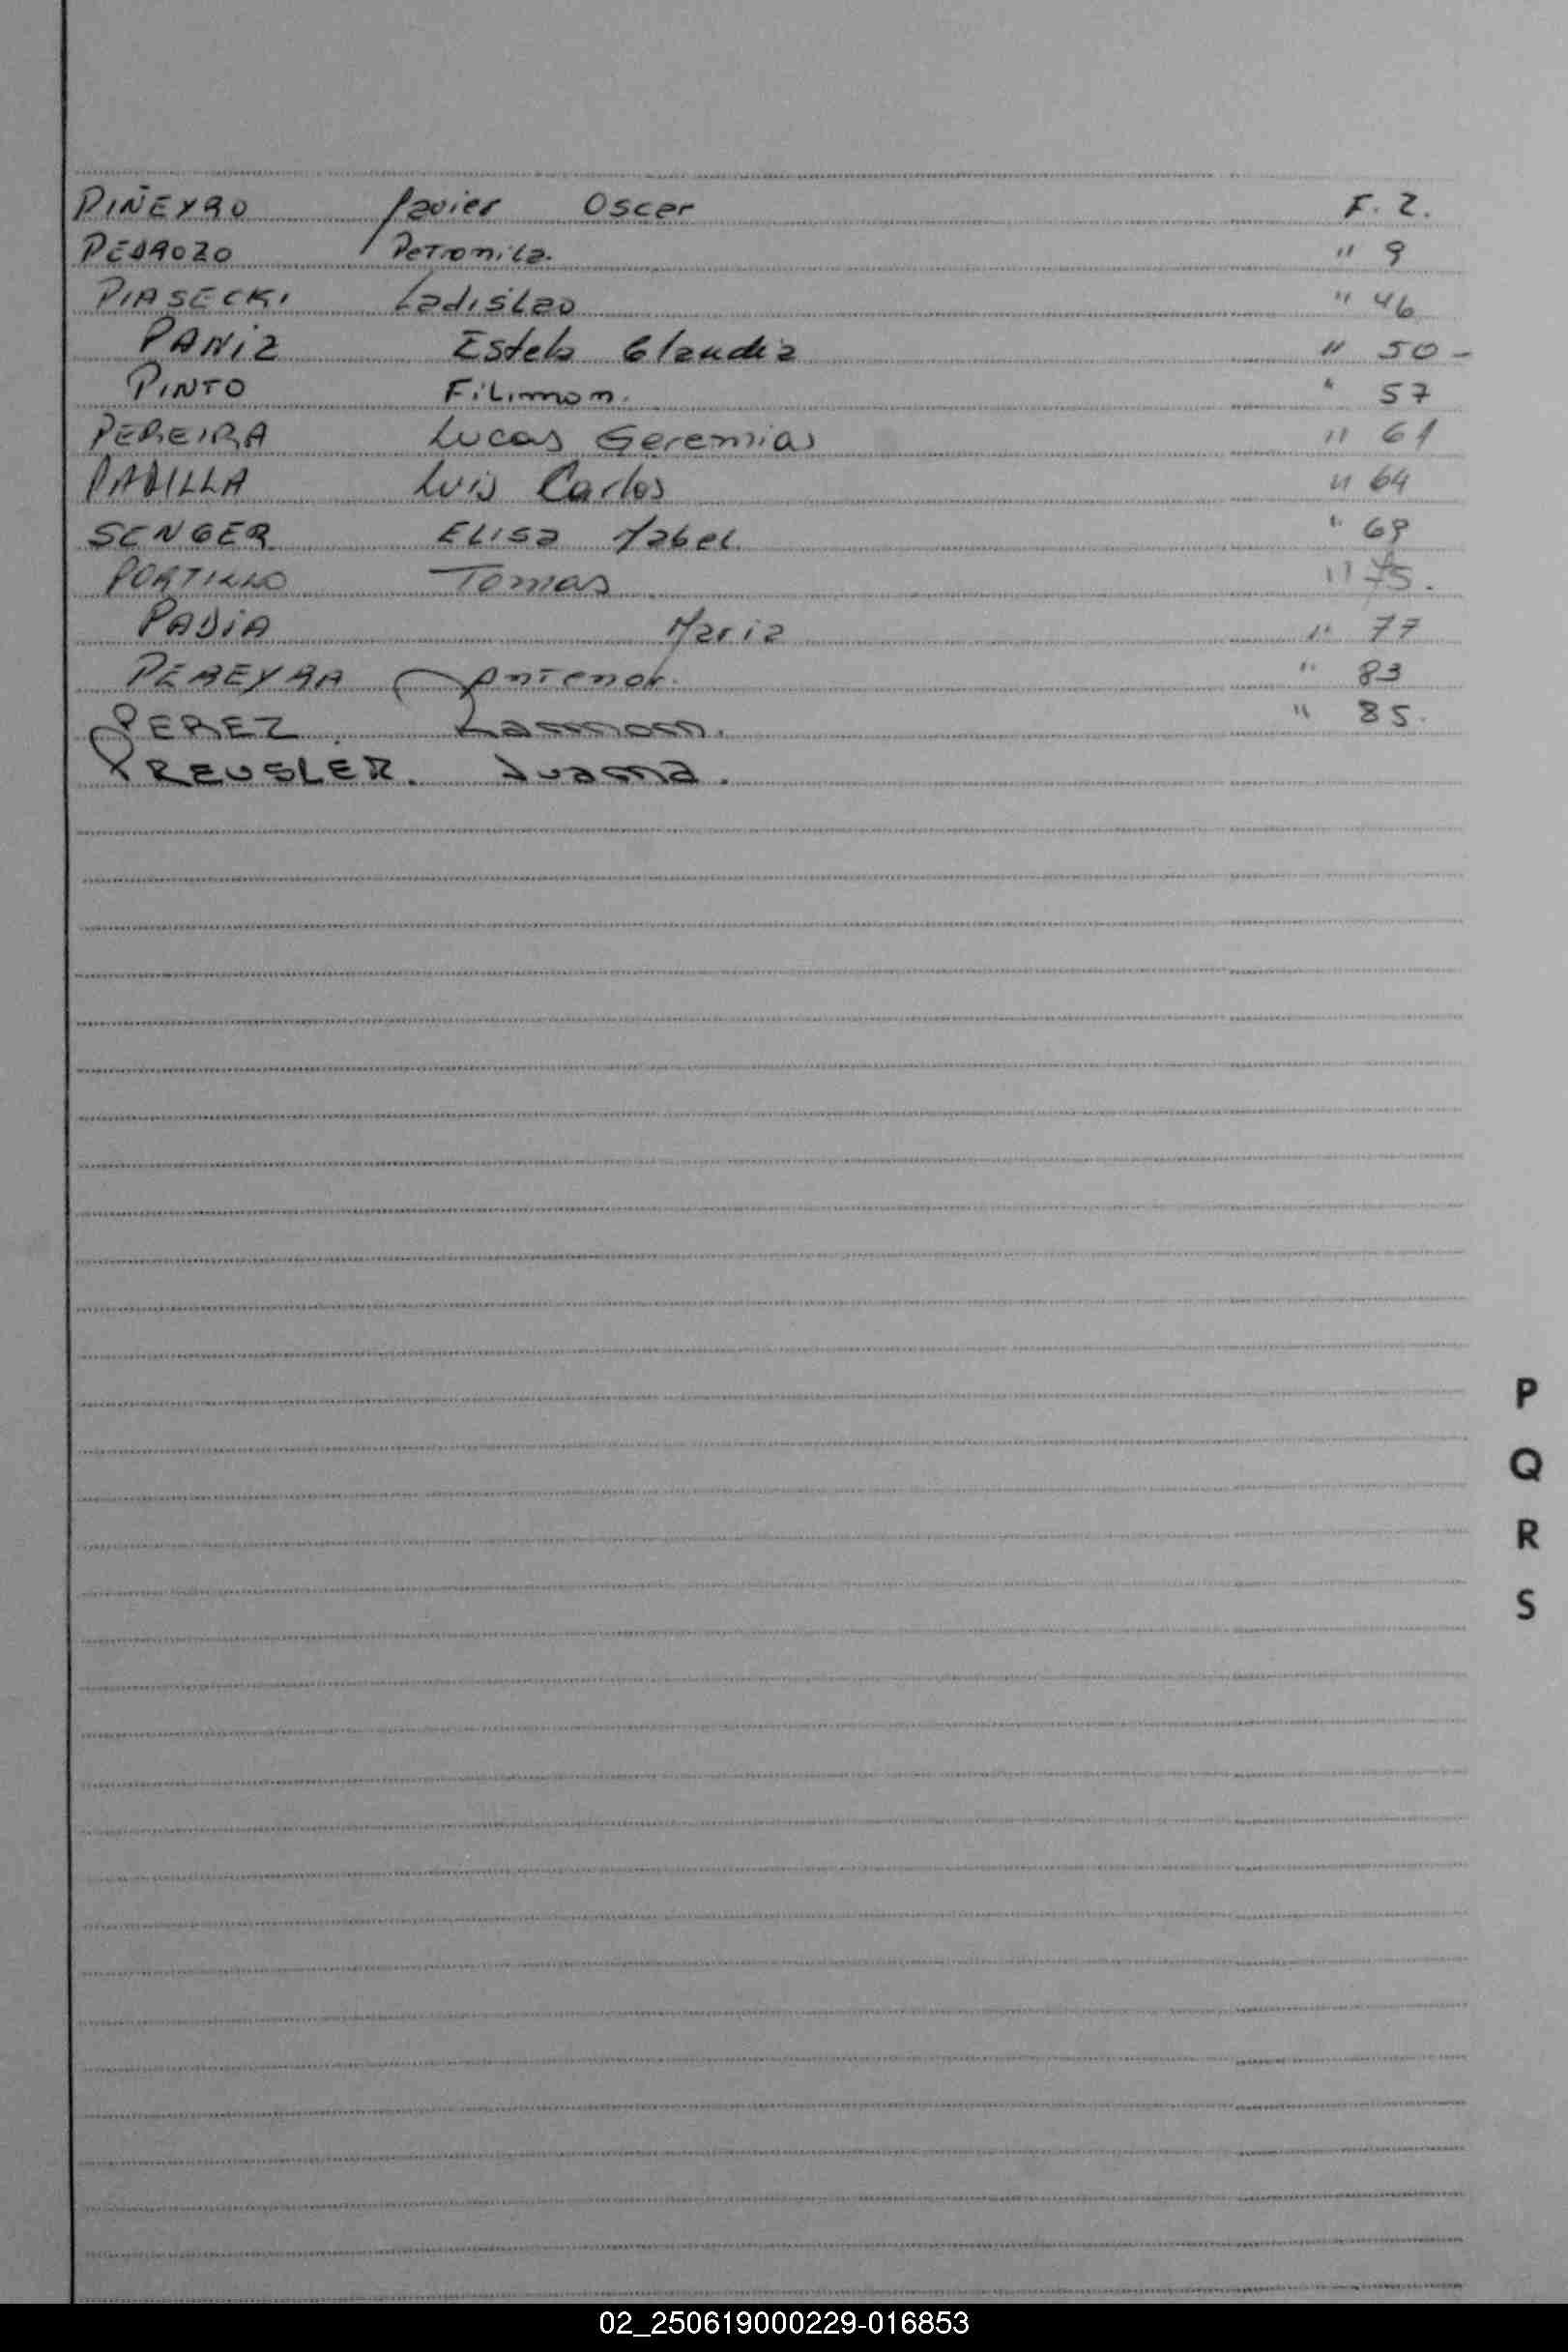 PIÑEYRO Javier Oscar F. 2.
PEDROZO Petronila. " 9
PIASECKI Ladislao " 46
PANIZ Estela Claudia " 50 -
PINTO Filimon. " 57
PEREIRA Lucas Geremias " 61
PADILLA Luis Carlos " 64
SENGER Elisa Mabel " 69
PORTILLO Tomas " 75.
PADIA Maria " 77
PEREYRA Antenor. " 83
PEREZ Ramon. " 85.
PREUSLER. Juana.
P
Q
R
S
02_250619000229-016853